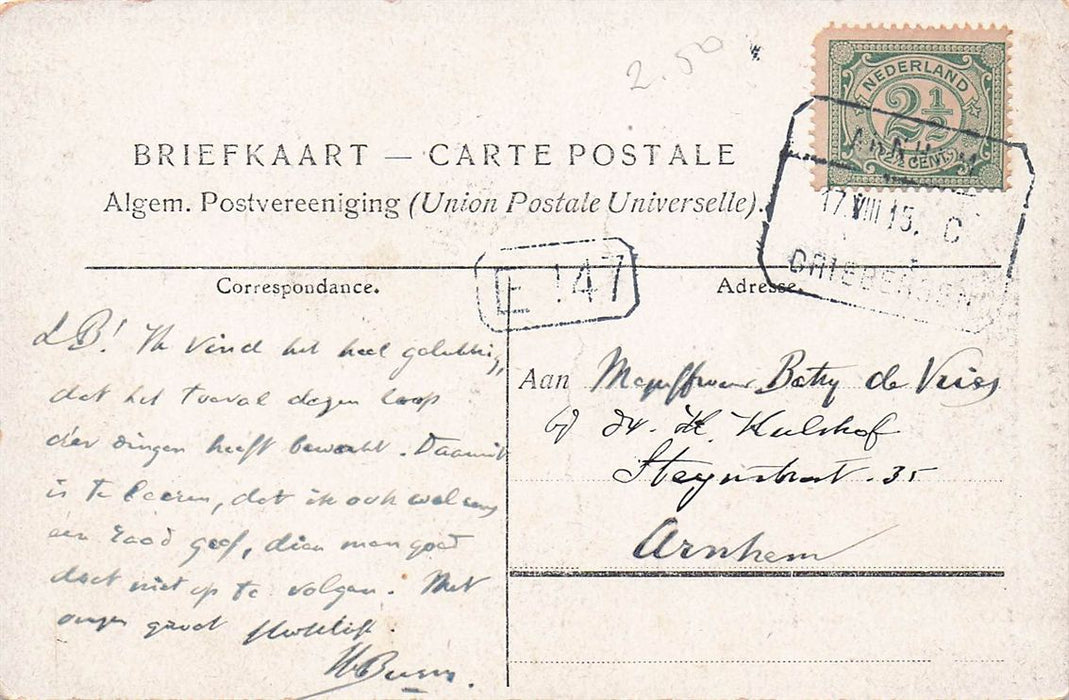 2.50
NEDERLAND
2½
2½ CENT.
ARNHEM
17.VIII 15. C
DRIEBERGEN
BRIEFKAART — CARTE POSTALE
Algem. Postvereeniging (Union Postale Universelle).
E 147
Correspondance.
Adresse.
L B! Ik vind het heel gelukkig,
dat het toeval dezen loop
der dingen heeft bewerkt. Daaruit
is te leeren, dat ik ook wel eens
een raad geef, dien men goed
doet niet op te volgen. Met
groet
Aan Mejuffrouw Betsy de Vries
H. Kulshof
Steynstraat. 35
Arnhem